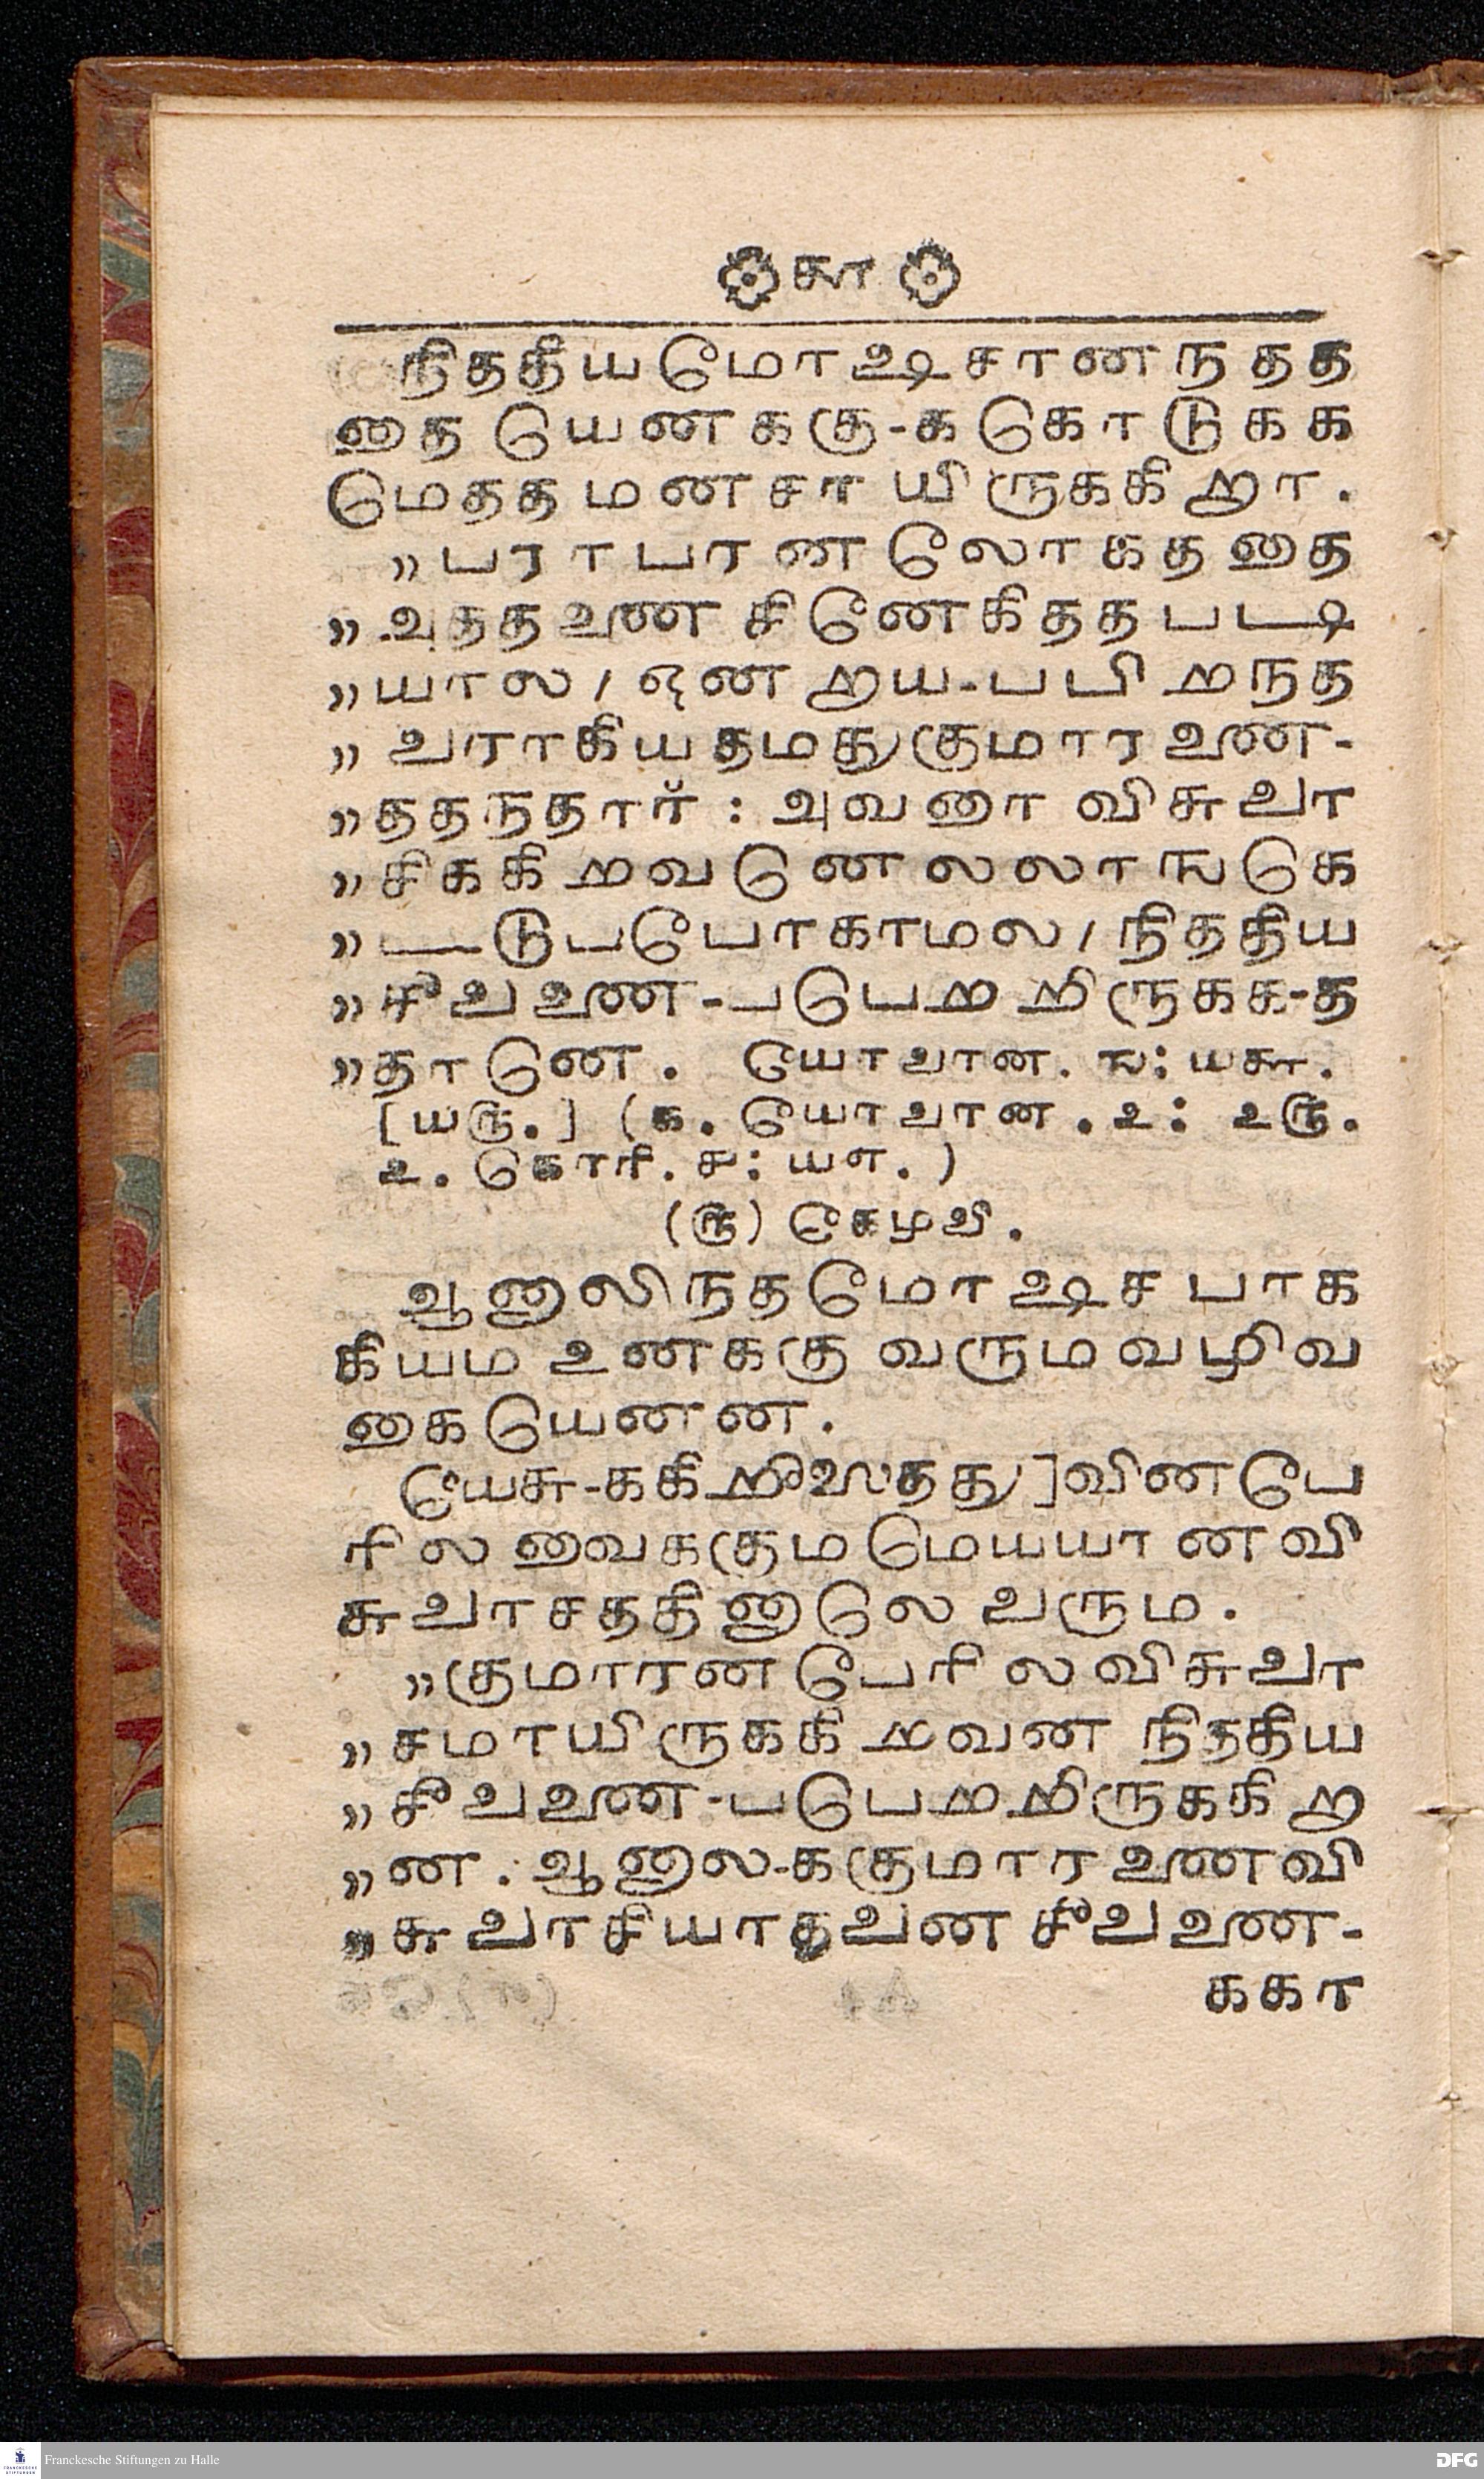 ௬
நிததியமோக்ஷசானநதத
தை யெனககு-ககொடுகக
மெததமனசாயிருககிறா.
» பராபரன லோகததை
» அததனை சினேகிததபடி
» யால / ஒனறய-பபிறநத
» வராகிய தமது குமாரனை-
» ததநதார் : அவனா விசுவா
» சிககிறவனெலலாஙகெ
» டடுபபோகாமல / நிததிய
» சீவனை-பபெறறிருகக-த
» தானெ. யோவான. ௩: ௰௬.
[௰௫.] (௧. யோவான. ௨: ௨௫.
௨. கொரி. ௪: ௰௭.)
(௫) கேழவி.
ஆனாலிநதமோக்ஷசபாக
கியம உனககு வரும வழிவ
கையெனன.
யேசு-ககிறீஸதது]வின பே
ரில வைககும மெயயான வி
சுவாசததினாலெ வரும.
» குமாரன பேரில விசுவா
» சமாயிருககிறவன நிததிய
» சீவனை-பபெறறிருககிறா
» ன. ஆனால-ககுமாரனை வி
» சுவாசியாதவன சீவனை-
ககா
Franckesche Stiftungen zu Halle
DFG